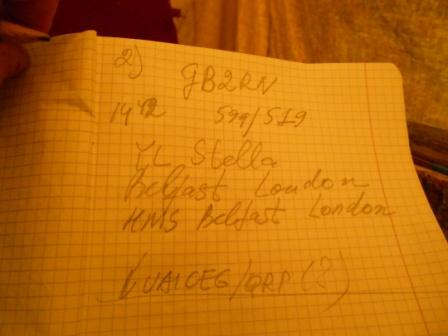 2) GB2RN
14 12 599/519
YL Stella
Belfast London
HMS Belfast London
UA1CEG/QRP (?)